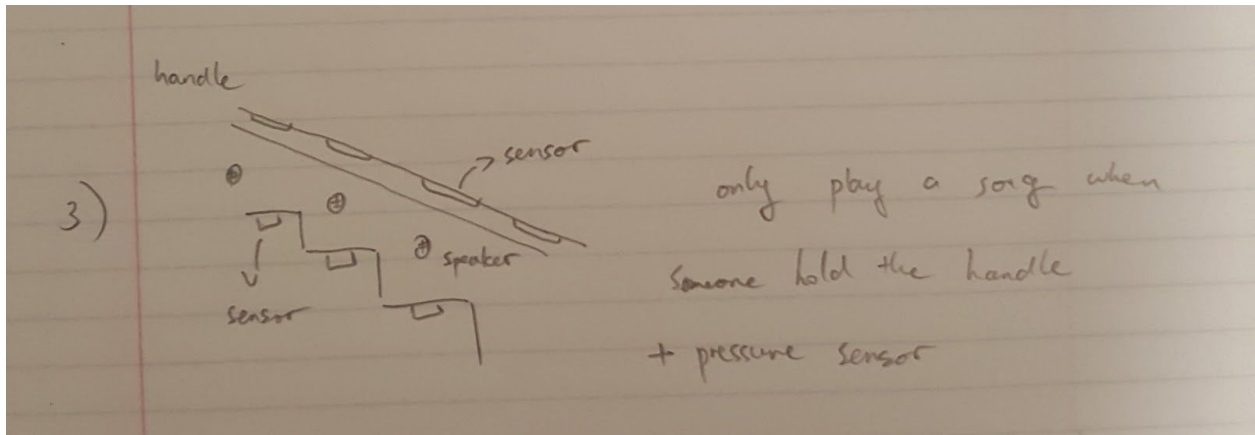 handle
sensor
3)
speaker
sensor
only play a song when
someone hold the handle
+ pressure sensor